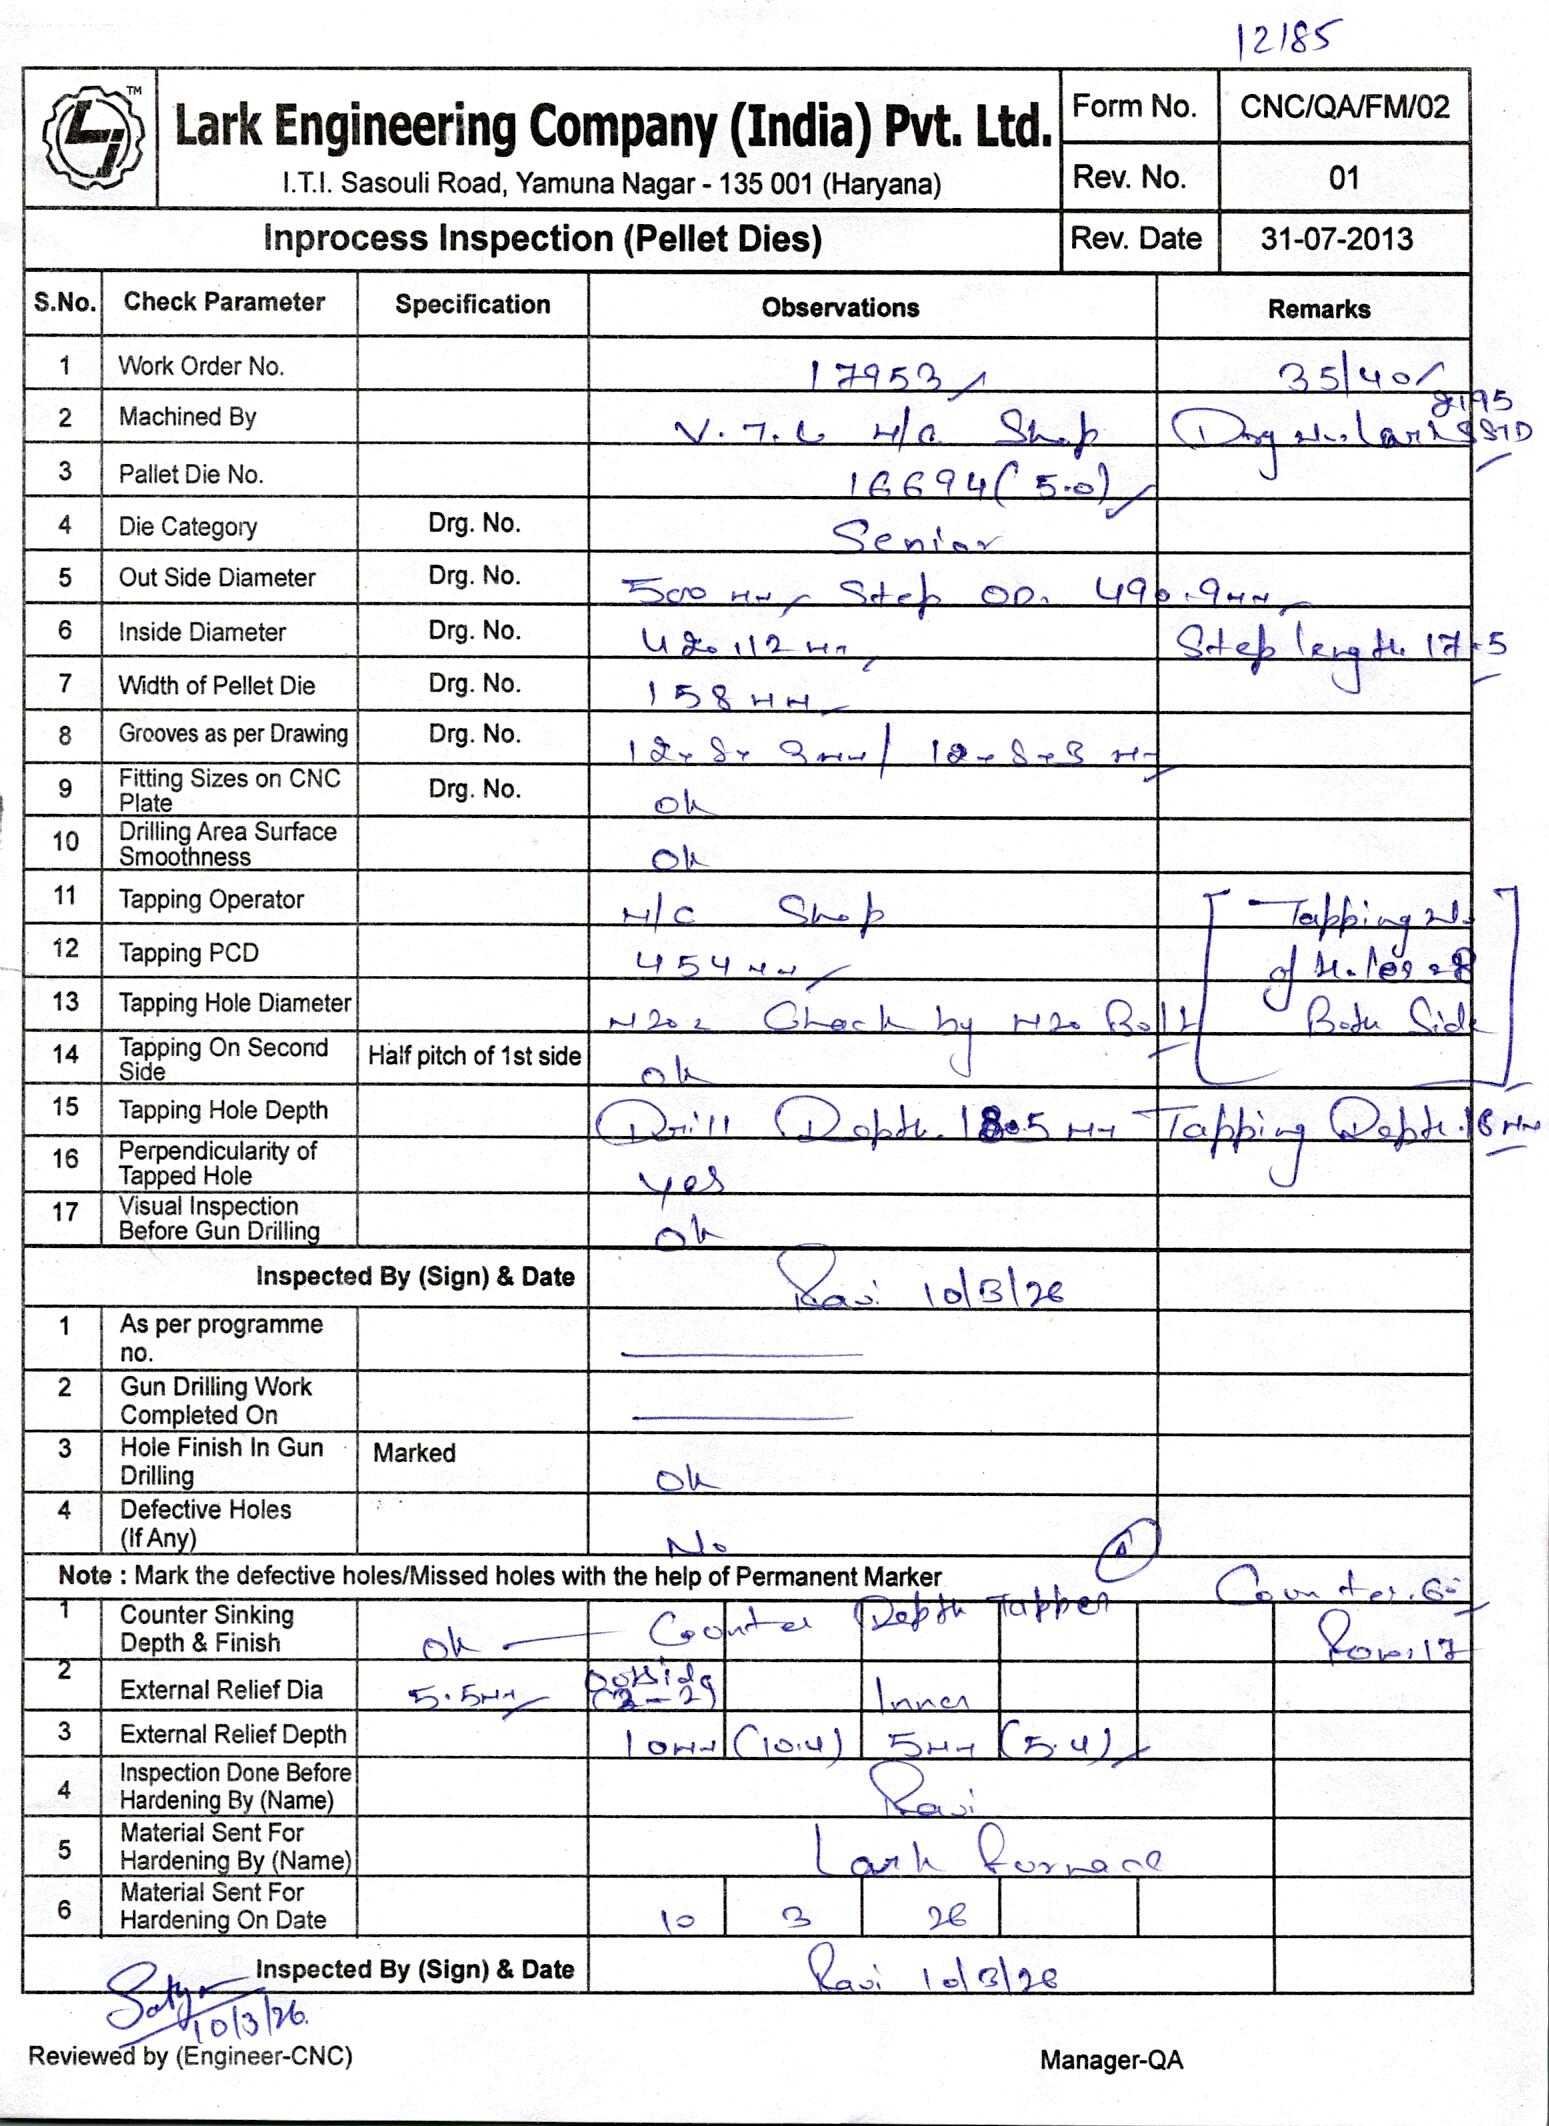 12185
TM
Lark Engineering Company (India) Pvt. Ltd.
I.T.I. Sasouli Road, Yamuna Nagar - 135 001 (Haryana)
Form No. CNC/QA/FM/02
Rev. No. 01
Inprocess Inspection (Pellet Dies) Rev. Date 31-07-2013
S.No. Check Parameter Specification Observations Remarks
1 Work Order No. 17953 35/40
2 Machined By V.T.L M/C Shop Drg No. Lark STD
3 Pallet Die No. 16694 (5.0)
4 Die Category Drg. No. Senior
5 Out Side Diameter Drg. No. 500 mm Step OD. 490.9mm
6 Inside Diameter Drg. No. 420.112 mm Step length 17.5
7 Width of Pellet Die Drg. No. 158 mm
8 Grooves as per Drawing Drg. No. 12x8x3mm/ 12x8x3 mm
9 Fitting Sizes on CNC Plate Drg. No. Ok
10 Drilling Area Surface Smoothness Ok
11 Tapping Operator M/C Shop Tapping No.
12 Tapping PCD 454mm of Holes = 8
13 Tapping Hole Diameter M20 = Check by M20 Bolt Both Side
14 Tapping On Second Side Half pitch of 1st side Ok
15 Tapping Hole Depth Drill Depth. 18.5 mm Tapping Depth. 16 mm
16 Perpendicularity of Tapped Hole Yes
17 Visual Inspection Before Gun Drilling Ok
Inspected By (Sign) & Date Ravi 10/3/26
1 As per programme no.
2 Gun Drilling Work Completed On
3 Hole Finish In Gun Drilling Marked Ok
4 Defective Holes (If Any) No
Note : Mark the defective holes/Missed holes with the help of Permanent Marker
1 Counter Sinking Depth & Finish Ok Counter Depth Tapper Counter. 60° Row. 17
2 External Relief Dia 5.5mm Outside (2-2) Inner
3 External Relief Depth 10mm (10.4) 5mm (5.4)
4 Inspection Done Before Hardening By (Name) Ravi
5 Material Sent For Hardening By (Name) Lark Furnace
6 Material Sent For Hardening On Date 10 3 26
Inspected By (Sign) & Date Ravi 10/3/26
Satya
10/3/26.
Reviewed by (Engineer-CNC) Manager-QA